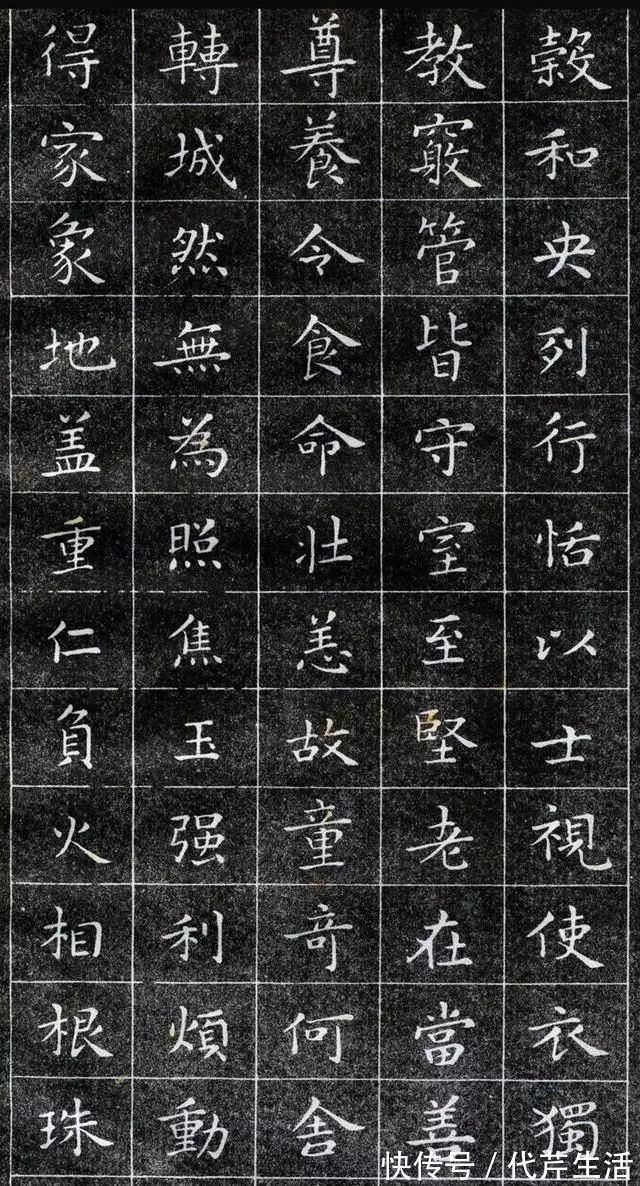 穀和央列行恬以士視使衣獨
教窮管皆守室至堅老在當善
尊養令食命壯恙故童奇何舍
轉城然無為照焦玉强利煩動
得家象地盖重仁負火相根珠
快传号/代芹生活